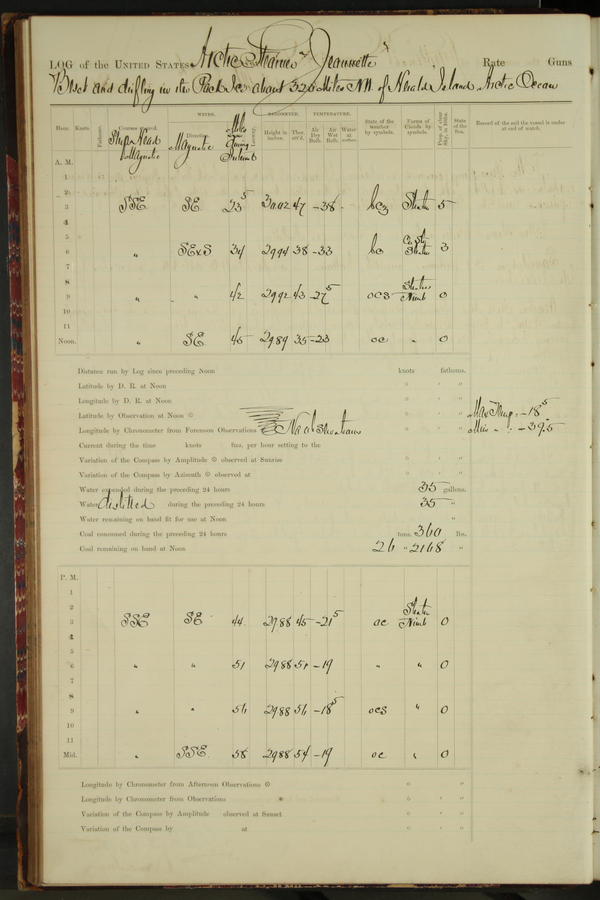 LOG of the UNITED STATES Arctic Steamer "Jeannette" Rate Guns
Beset and drifting in the Pack Ice about 320 Miles NW. of Herald Island Arctic Ocean
WINDS. BAROMETER. TEMPERATURE.
Hour. Knots. Fathoms. Courses steered. Ship's Head Magnetic Direction. Magnetic Leeway. Height in inches. Ther. att'd. Air Dry Bulb. Air Wet Bulb. Water at surface. State of the weather by symbols. Forms of Clouds by symbols. Prop. of clear Sky, in 10ths. State of the Sea. Record of the sail the vessel is under at end of watch.
A. M.
1
2
3 SSE SE 23 5 3002 47 -38 bcz Stratus 5
4
5
6 " SExS 34 2994 38 -33 bc Stratus 3
7
8
9 " " 42 2992 43 -27 5 ocs Stratus Nimb 0
10
11
Noon. " SE 45 2989 35 -23 oc " 0
Distance run by Log since preceding Noon knots fathoms.
Latitude by D. R. at Noon ° ′ ″
Longitude by D. R. at Noon ° ′ ″
Latitude by Observation at Noon ⊙ ° ′ ″ Max Temp. -18 5
Longitude by Chronometer from Forenoon Observations No observations ° ′ ″ Min " -39.5
Current during the time knots fms. per hour setting to the
Variation of the Compass by Amplitude ⊙ observed at Sunrise ° ′ ″
Variation of the Compass by Azimuth ⊙ observed at ° ′ ″
Water expended during the preceding 24 hours 35 gallons.
Water distilled during the preceding 24 hours 35 "
Water remaining on hand fit for use at Noon "
Coal consumed during the preceding 24 hours tons. 360 lbs.
Coal remaining on hand at Noon 26 " 2168 "
P. M.
1
2
3 SSE SE 44 2988 45 -21 5 oc Stratus Nimb 0
4
5
6 " " 51 2988 51 -19 " " 0
7
8
9 " " 56 2988 56 -18 5 ocs " 0
10
11
Mid. " SSE 58 2988 54 -19 oc " 0
Longitude by Chronometer from Afternoon Observations ⊙ ° ′ ″
Longitude by Chronometer from Observations * ° ′ ″
Variation of the Compass by Amplitude observed at Sunset ° ′ ″
Variation of the Compass by at ° ′ ″